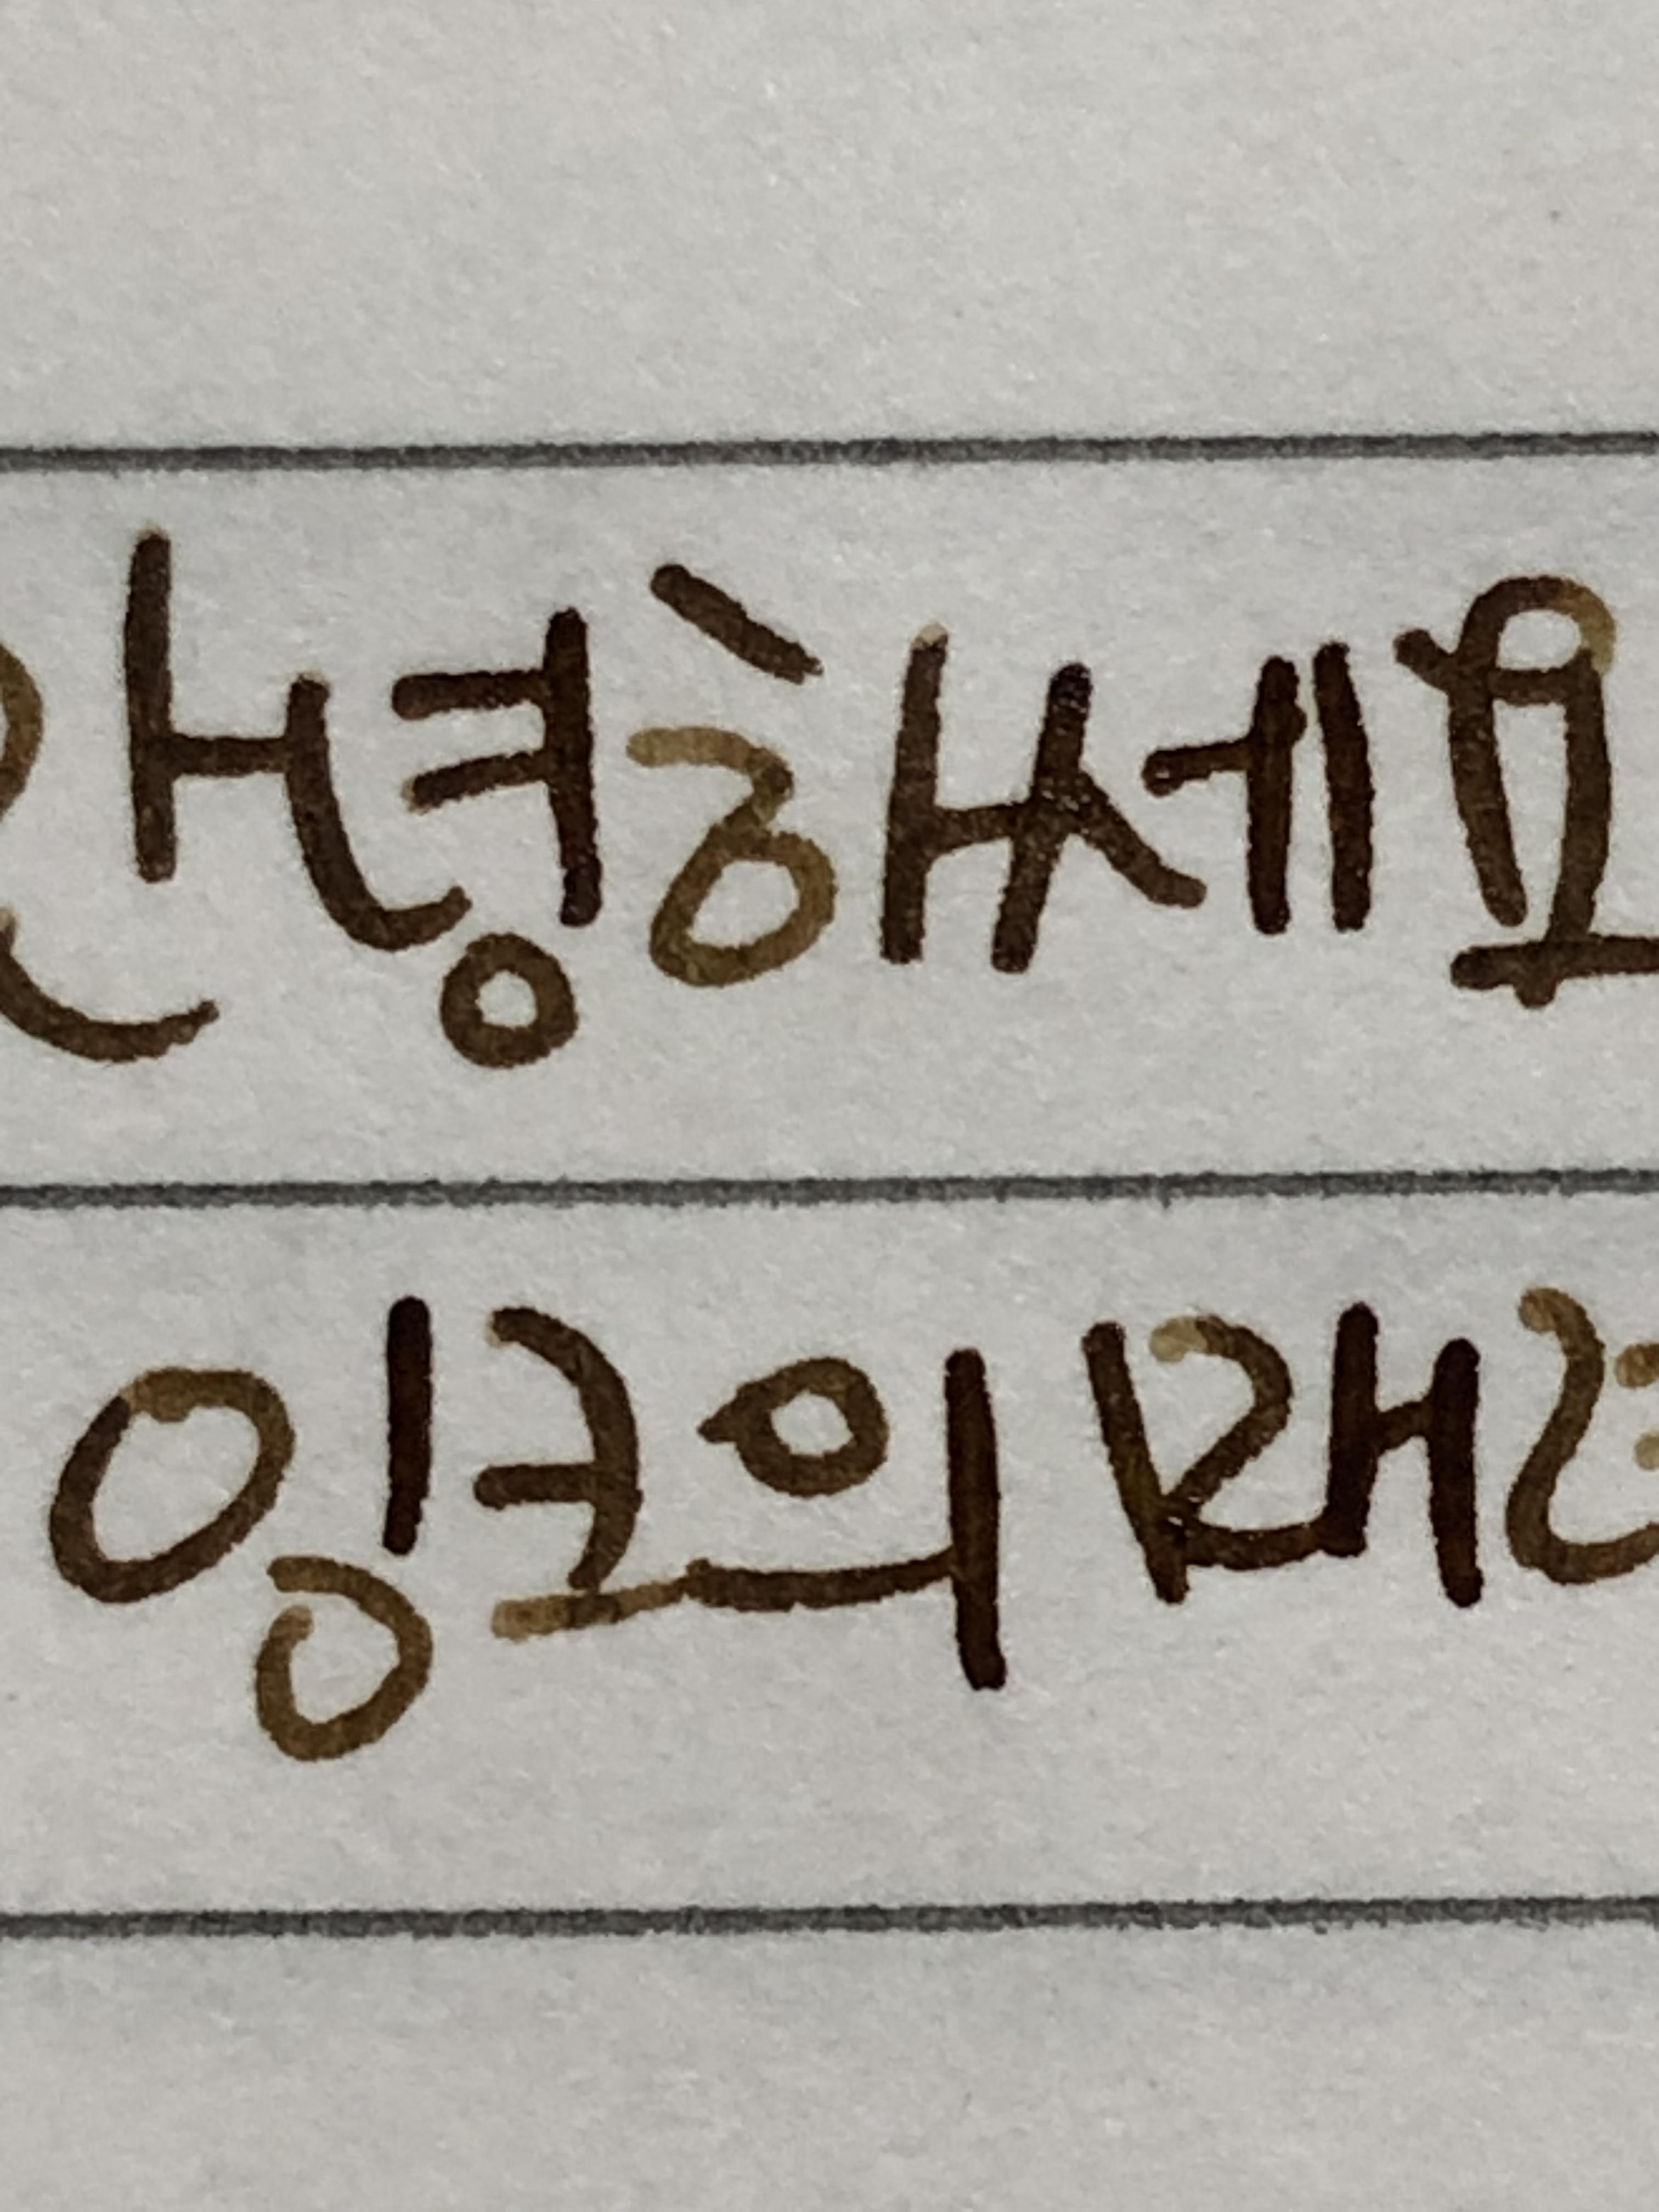 안녕하세요
잉크의 매